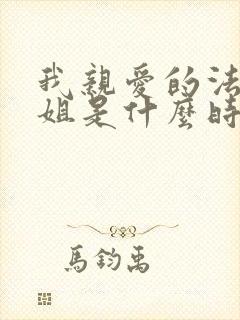 我親愛的法
姐是什麼時
馬鈞禹